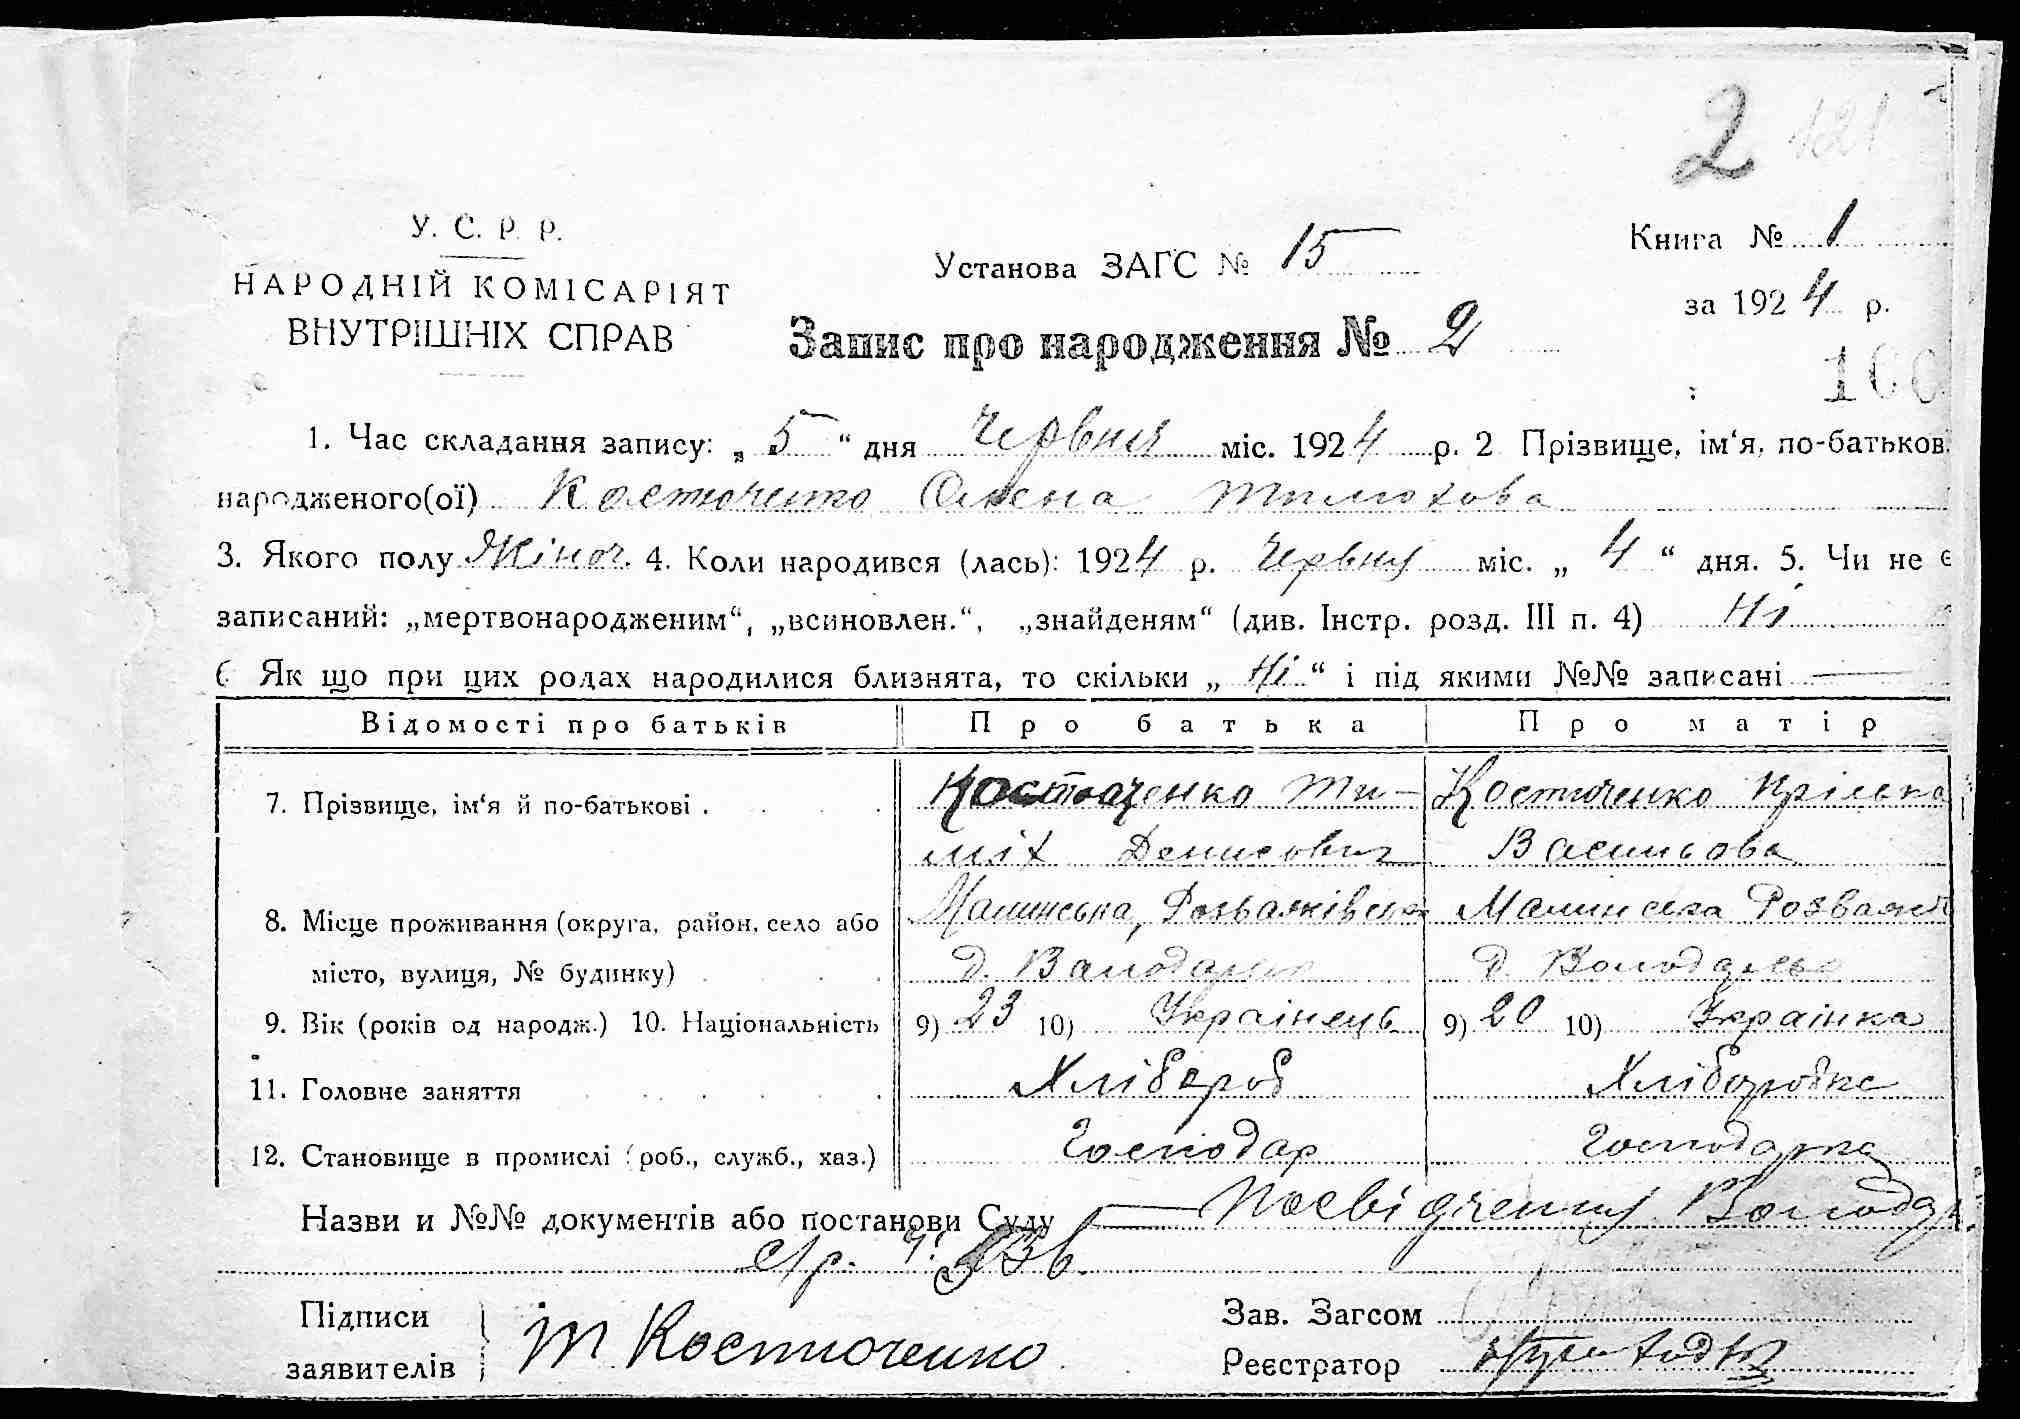 2 121
У. С. Р. Р.
НАРОДНІЙ КОМІСАРІЯТ
ВНУТРІШНІХ СПРАВ
Установа ЗАГС № 15
Книга № 1
за 1924 р.
Запис про народження № 2
100
1. Час складання запису: „5“ дня Червня міс. 1924 р. 2 Прізвище, ім‘я, по-батьков.
народженого(ої) Костюченко Олена Тимохова
3. Якого полу Жіноч. 4. Коли народився (лась): 1924 р. Червня міс. „4“ дня. 5. Чи не є
записаний: „мертвонародженим“, „всиновлен.“, „знайденям“ (див. Інстр. розд. III п. 4) Ні
6 Як що при цих родах народилися близнята, то скільки „Ні“ і під якими №№ записані —
Відомості про батьків Про батька Про матір
7. Прізвище, ім‘я й по-батькові . Костюченко Ти- Костюченко
міх Денисович Васильова
8. Місце проживання (округа, район, село або Малинська, Розважівськ Малинська Розважів
місто, вулиця, № будинку) д. Володарка д. Володарка
9. Вік (років од народж.) 10. Національність 9) 23 10) Українець 9) 20 10) Українка
11. Головне заняття Хлібороб Хліборобка
12. Становище в промислі (роб., служб., хаз.) Господар Господарка
Назви и №№ документів або постанови Суду — Посвідчення Володар
Підписи
заявителів Т Костюченко
Зав. Загсом
Реєстратор